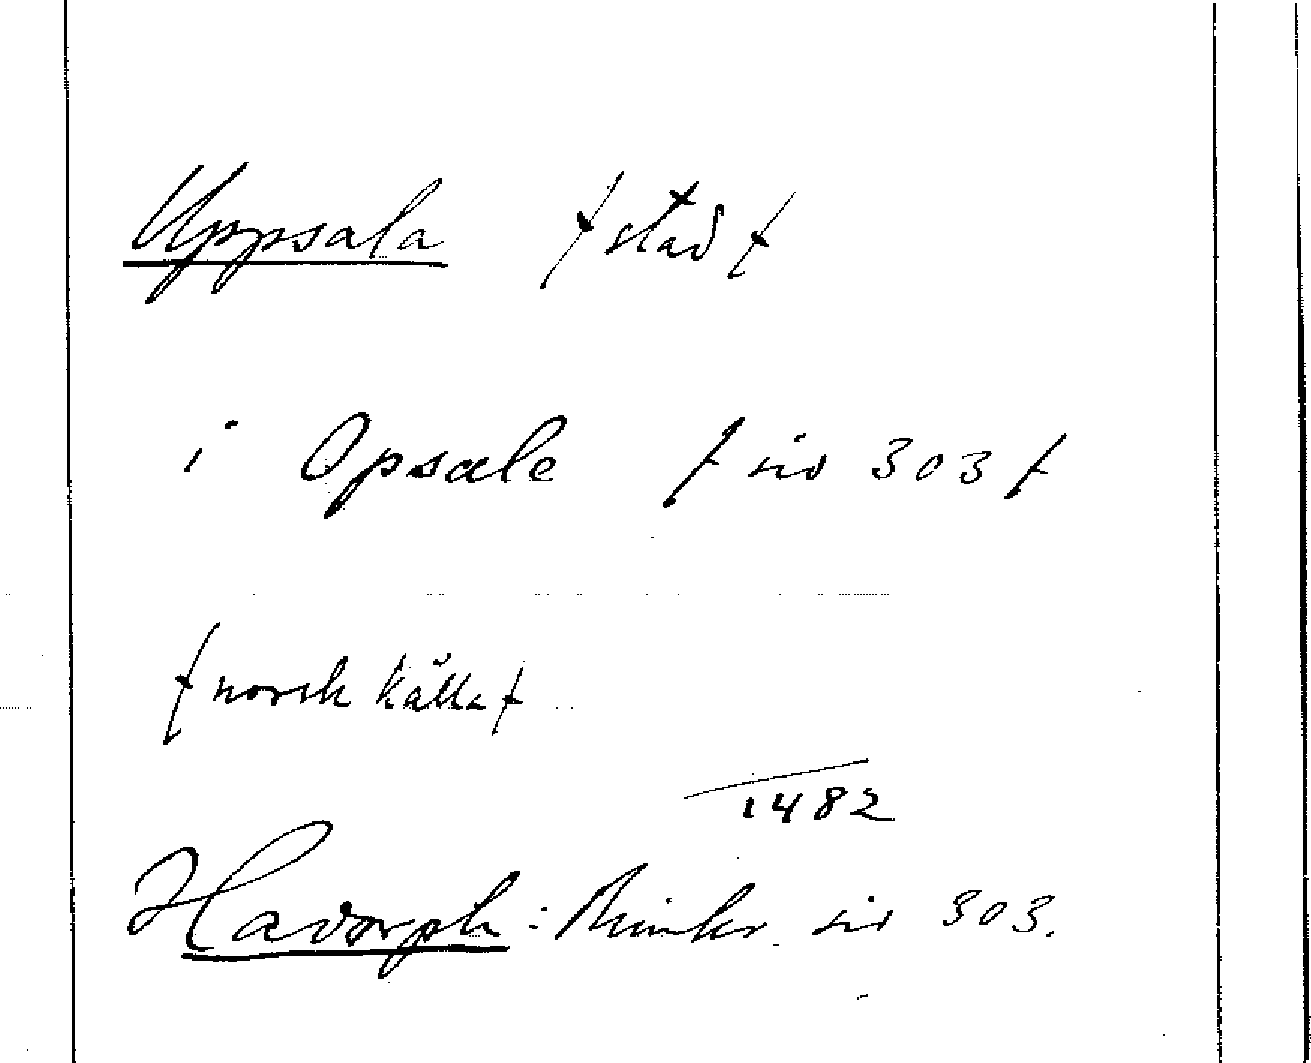 Uppsala (stad)
i Opsale (sid 303)
(norsk källa)
1482
Hadorph: Rimkr. sid 303.